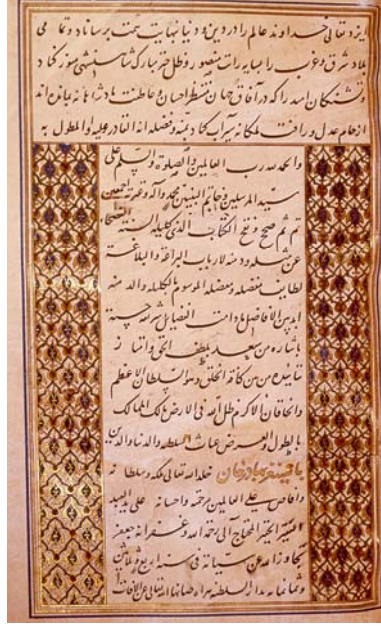 ایزد تعالی خداوند عالم را در دین و دنیا نهایت همت برساناد و تمامی
بلاد شرق و غرب را بسایه رایت منصور و ظل چتر مبارک شاهنشهی منور کناد
و تشنگان امید را که در آفاق جهان منتظر احسان و عاطفت پادشاهانه مانده‌اند
از غمام عدل و رأفت ملکانه سیراب کناد بمنه و فضله انه القادر علیه و المطول به
والحمد لله رب العالمین والصلوة والسلم علی
سید المرسلین و خاتم النبیین محمد وآله وعترته اجمعین
تم ثم صحح ونقح الکتاب الذی کلیلة السنة الفصحاء
عن مثله ودمنة لارباب البراعة والبلاغة
لطایف مفصله ومعضله الموسوم بالکلیله والدمنه
الافاضل مادامت الفضایل شرعة حسنة
باشارة من سعد بلطف الحق وامتاز
بتأییده من بین کافة الخلق وهو السلطان الاعظم
والخاقان الاکرم ظل الله فی الارض ملک الممالک
بالطول والعرض غیاث السلطنه والدنیا والدین
بایسنغر بهادر خان خلد الله تعالی ملکه وسلطانه
وافاض علی العالمین مرحمته واحسانه علی ید العبد
الفقیر الحقیر المحتاج الی رحمة الله وغفرانه جعفر
تجاوز الله عن سیئاته فی سنه اربع وثلثین
وثمانمایه بدار السلطنه هراه صانها الله تعالی عن الآفات